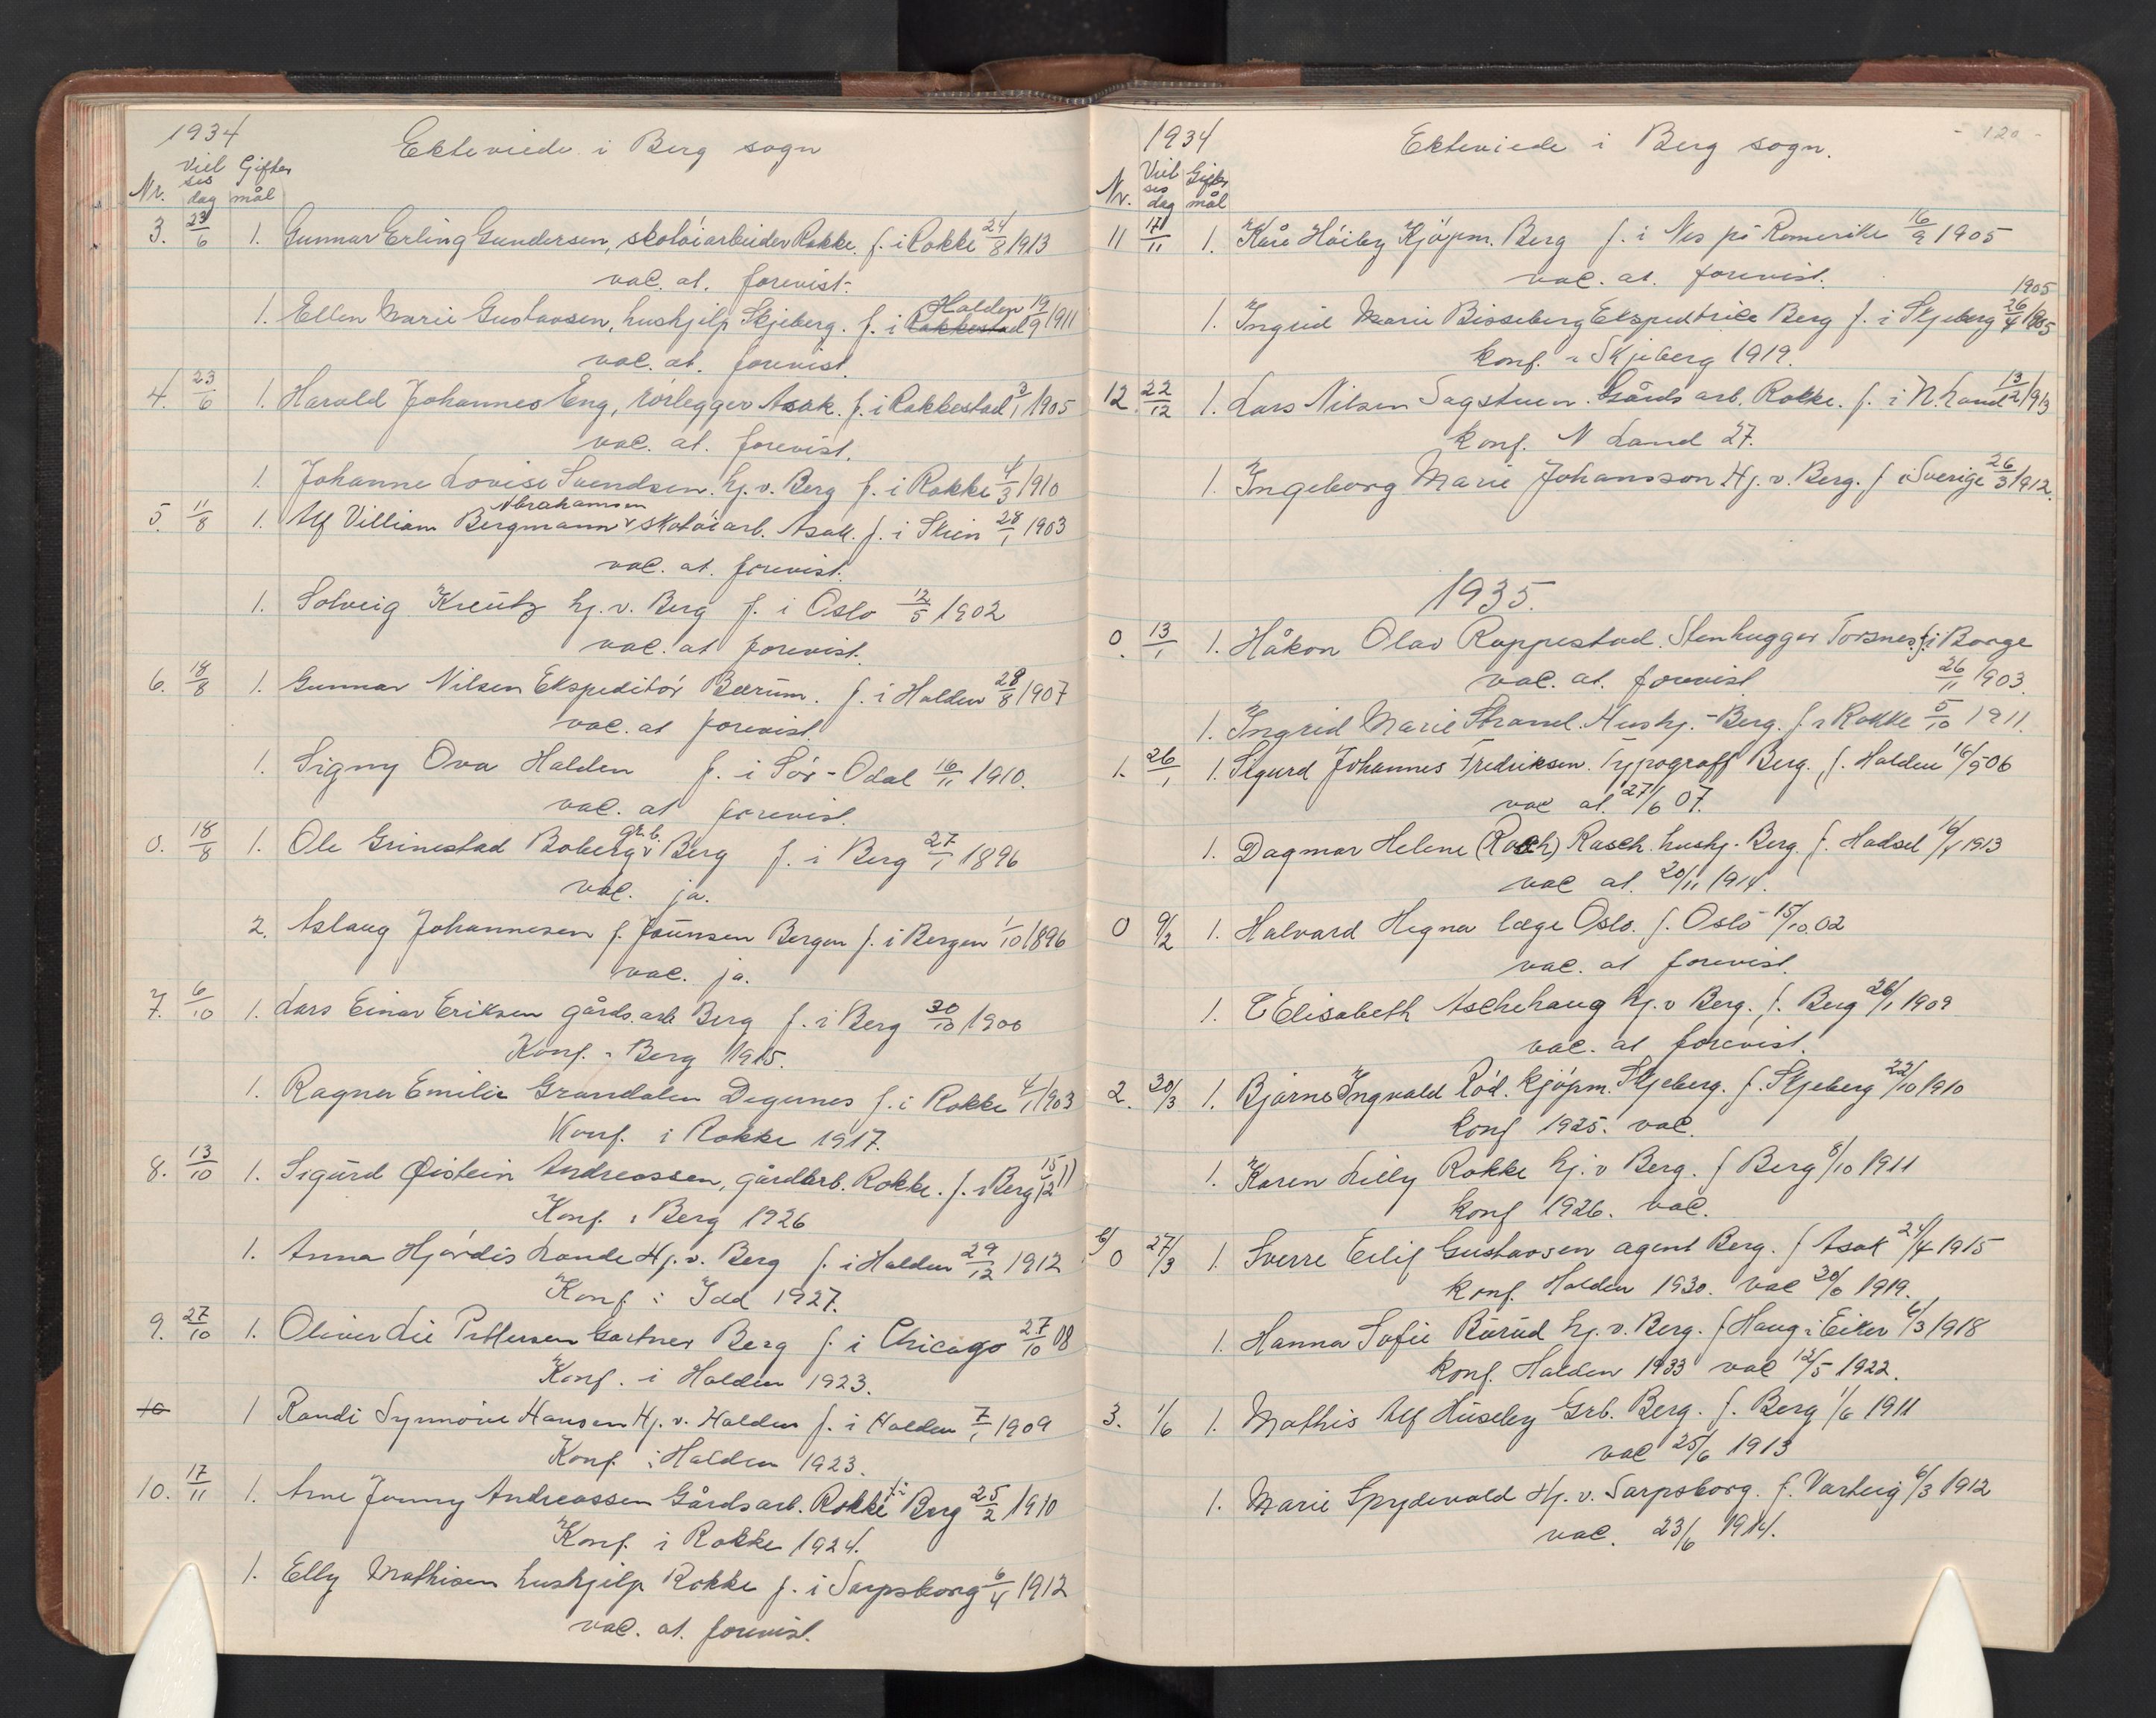 1934
Ekteviede i Berg sogn
Nr. Viel ses dag Giftes mål
3. 23/6 1. Gunnar Erling Gundersen, skotöiarbeider Rokke. f. i Rokke 24/8 1913
vac. at. forevist.
Halden
1. Ellen Marie Gustavsen, hushjelp Skjeberg. f. i Rakkestad 19/9 1911
vac. at. forevist.
4. 23/6 1. Harald Johannes Eng, rörlegger Asak. f. i Rakkestad 3/1 1905
vac. at. forevist.
1. Johanne Lovise Svendsen. hj. v. Berg f. i Rokke 4/3 1910
Abrahamsen
5. 11/8 1. Alf Villiam Bergmann v skotöiarb. Asak. f. i Skien 28/1 1903
vac. at. forevist.
1. Solveig Kreutz hj. v. Berg f. i Oslo 12/5 1902
vac. at forevist.
6. 18/8 1. Gunnar Nilsen Ekspeditör Bærum. f. i Halden 28/8 1907
vac. at forevist.
1. Signy Ova Halden f. i Sör-Odal 16/11 1910.
vac. at forevist.
grb.
0. 18/8 1. Ole Grinestad Boberg v Berg f. i Berg 27/1 1896
vac. ja.
2. Aslaug Johannesen f. Jaunsen Bergen f. i Bergen 1/10 1896
vac. ja.
7. 6/10 1. Lars Einar Eriksen gårds.arb Berg f. i Berg 30/10 1900
Konf. i Berg 1915.
1. Ragna Emilie Grandalen Degernes f. i Rokke 4/1 1903
Konf. i Rokke 1917.
8. 13/10 1. Sigurd Øistein Andreassen, gårdarb. Rokke. f. i Berg 15/12 11
Konf. i Berg 1926
1. Anna Hjördis Lande Hj. v. Berg f. i Halden 29/12 1912
Konf. i Idd 1927.
9. 27/10 1. Oliver Lie Pettersen Gartner Berg f. i Chicago 27/10 08
Konf. i Halden 1923.
10 1 Randi Synnöve Hansen Hj. v. Halden f. i Halden 7/1 1909
Konf. i Halden 1923.
10. 17/11 1. Arne Jonny Andreassen Gårdsarb. Rokke f. i Berg 25/2 1910
Konf. i Rokke 1924.
1. Elly Mathisen hushjelp Rokke f. i Sarpsborg 6/4 1912
vac. at. forevist.
- 120 -
1934
Ekteviede i Berg sogn.
Nr. Viel ses dag Giftes mål
11 17/11 1. Kåre Höiby Kjöpm. Berg f. i Nes på Romerike 16/9 1905
vac. at. forevist.
1905
1. Ingrid Marie Bisseberg Ekspeditrice Berg f. i Skjeberg 26/4 1905
konf. i Skjeberg 1919.
12. 22/12 1. Lars Nilsen Sagstuen. Gårdsarb. Rokke. f. i N. Land 13/2 1913
konf. N Land 27.
1. Ingeborg Marie Johansson Hj. v. Berg. f i Sverige 26/3 1912.
1935.
0. 13/1 1. Håkon Olav Roppestad. Stenhugger Torsnes. f. i Borge
vac. at. forevist. 26/11 1903.
1. Ingrid Marie Strand. Hushj. - Berg. f. i Rokke 5/10 1911.
1. 26/1 1. Sigurd Johannes Fredriksen. Typograff Berg. f. Halden 16/5 06
vac at. 27/6 07.
1. Dagmar Helene (Rach) Rasch. hushj. Berg. f. Hadsel
vac at. 20/11 1914.
0 9/2 1. Halvard Hegna læge Oslo. f. Oslo 15/10.02
vac. at forevist.
1. C Elisabeth Aschehaug hj. v Berg. f. Berg 26/1 1909
vac. at forevist.
2. 30/3 1. Bjarne Ingvald Röd. kjöpm. Skjeberg. f. Skjeberg 22/10 1910
konf 1925. vac.
1. Karen Lilly Rokke hj. v Berg. f Berg 8/10 1911
konf 1926. vac.
0 27/3 1. Sverre Eilif Gustavsen agent Berg. f Asak 24/4 1915
konf. Halden 1930. vac 30/6 1919.
1. Hanna Sofie Burud hj. v. Berg. f Haug i Eiker 6/3 1918
konf. Halden 1933 vac 12/5 1922.
3. 1/6 1. Mathis Alf Huseby Grb. Berg. f. Berg 1/6 1911
vac 25/6 1913
1. Marie Spydevold Hj. v. Sarpsborg. f. Varteig 6/3 1912
vac. 23/6 1914.